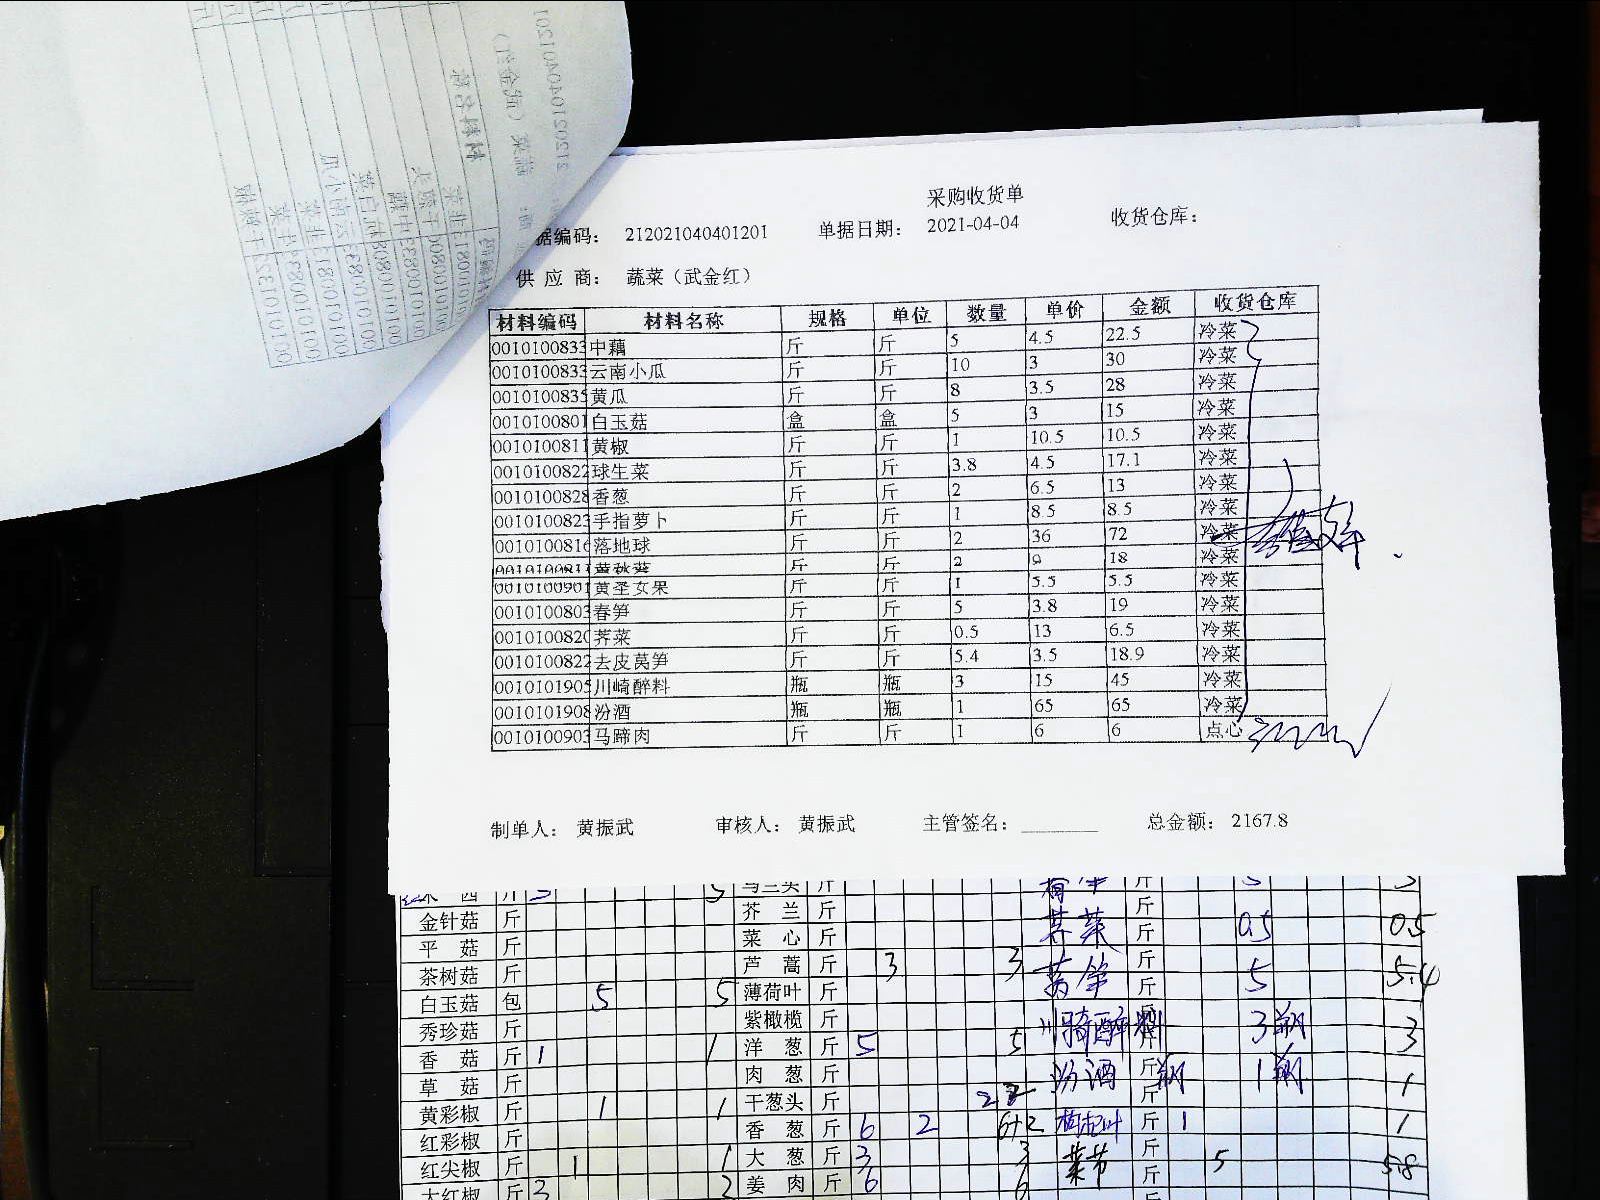 采购收货单
据编码： 212021040401201 单据日期： 2021-04-04 收货仓库：
供 应 商： 蔬菜（武金红）
材料编码 材料名称 规格 单位 数量 单价 金额 收货仓库
0010100833 中藕 斤 斤 5 4.5 22.5 冷菜
0010100833 云南小瓜 斤 斤 10 3 30 冷菜
0010100835 黄瓜 斤 斤 8 3.5 28 冷菜
0010100801 白玉菇 盒 盒 5 3 15 冷菜
0010100811 黄椒 斤 斤 1 10.5 10.5 冷菜
0010100822 球生菜 斤 斤 3.8 4.5 17.1 冷菜
0010100828 香葱 斤 斤 2 6.5 13 冷菜
0010100823 手指萝卜 斤 斤 1 8.5 8.5 冷菜
0010100816 落地球 斤 斤 2 36 72 冷菜
斤 斤 2 9 18 冷菜
0010100901 黄圣女果 斤 斤 1 5.5 5.5 冷菜
0010100803 春笋 斤 斤 5 3.8 19 冷菜
0010100820 荠菜 斤 斤 0.5 13 6.5 冷菜
0010100822 去皮莴笋 斤 斤 5.4 3.5 18.9 冷菜
0010101905 川崎醉料 瓶 瓶 3 15 45 冷菜
0010101908 汾酒 瓶 瓶 1 65 65 冷菜
0010100903 马蹄肉 斤 斤 1 6 6 点心
制单人： 黄振武 审核人： 黄振武 主管签名： 总金额： 2167.8
斤 3 5 马兰头 斤 斤 5 5
金针菇 斤 芥 兰 斤 荠菜 斤 0.5 0.5
平 菇 斤 菜 心 斤 斤
茶树菇 斤 芦 蒿 斤 3 3 莴笋 斤 5 5.4
白玉菇 包 5 5 薄荷叶 斤 斤
秀珍菇 斤 紫橄榄 斤 川骑醉料 斤 3瓶 3
香 菇 斤 1 1 洋 葱 斤 5 5
草 菇 斤 肉 葱 斤 汾酒 斤 瓶 1瓶 1
黄彩椒 斤 1 1 干葱头 斤 2 斤
红彩椒 斤 香 葱 斤 6 2 6+2 枸杞叶 斤 1 1
红尖椒 斤 1 1 大 葱 斤 3 3 菜节 斤 5 5.8
大红椒 斤 3 2 姜 肉 斤 6 6 斤